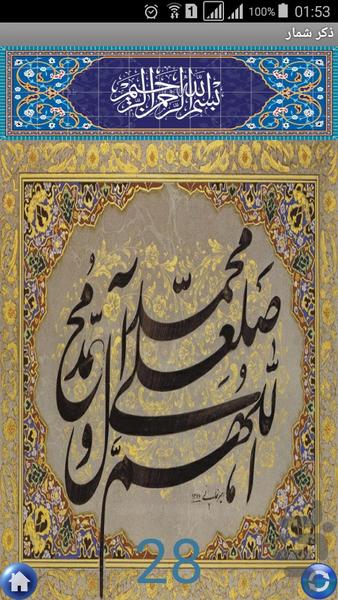 100% 01:53
ذکر شمار
بسم الله الرحمن الرحیم
اللهم صل علی محمد و آل محمد
28